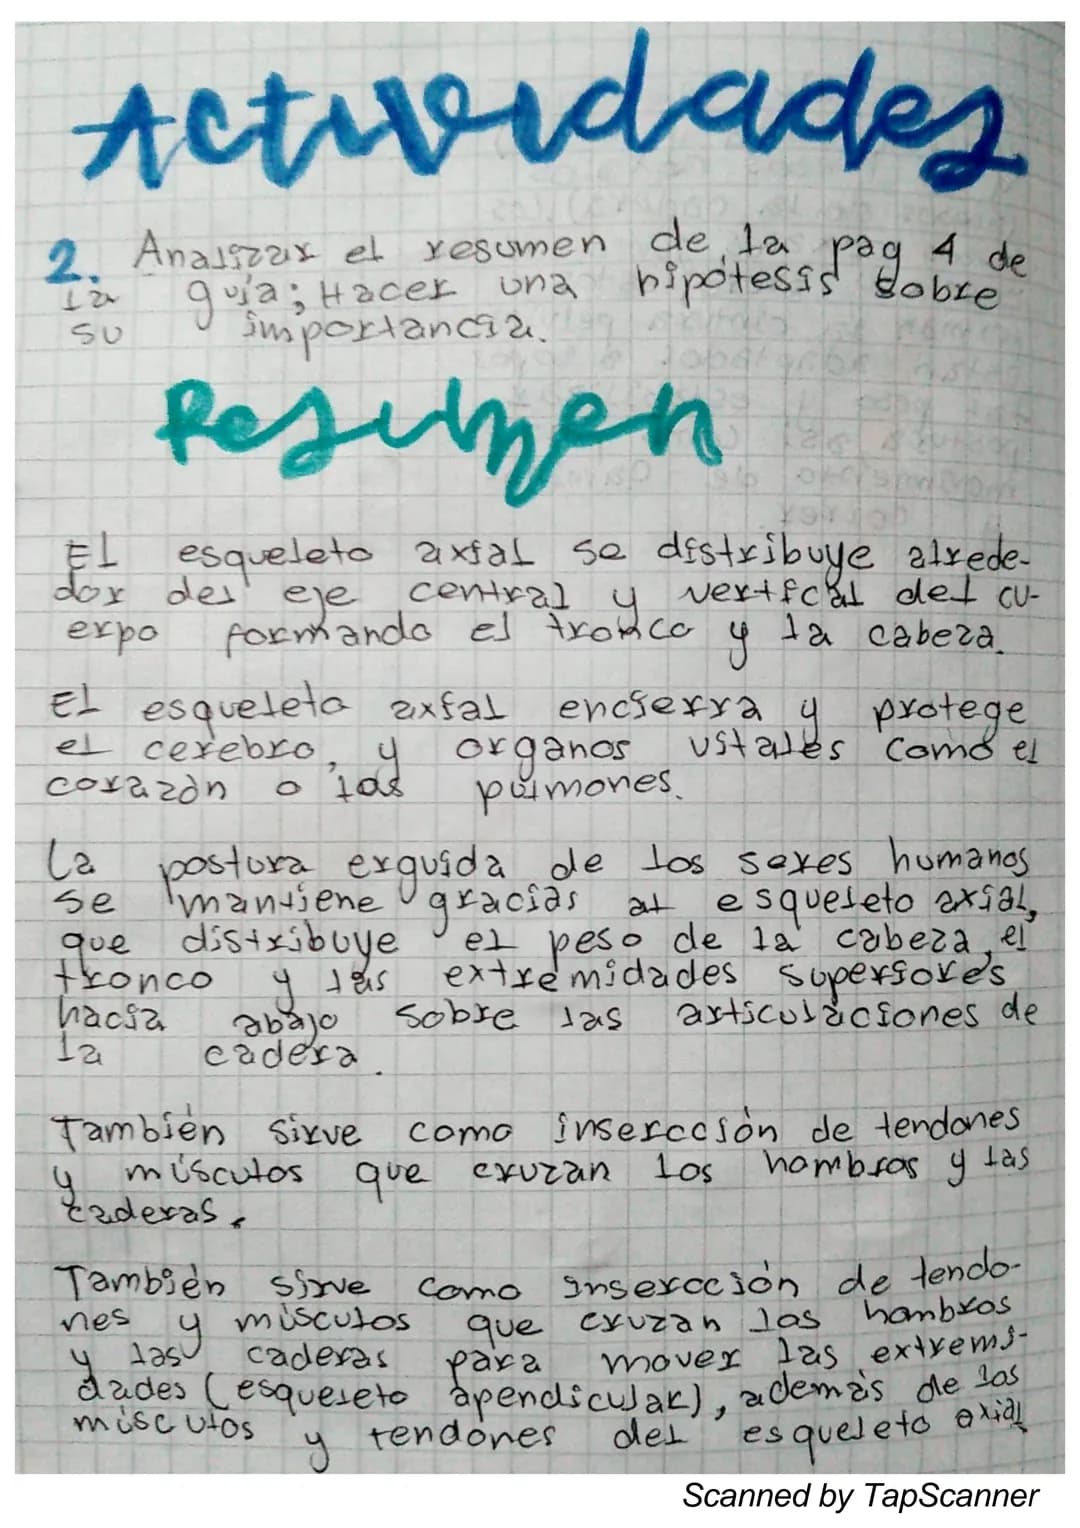 Actividades
2. Analizar el resumen de la pag 4 de
la guía; Hacer una hipótesis sobre
su importancia.
Resumen
El esqueleto axial se distribuye alrede-
dor del eje central y vertical del cu-
erpo formando el tronco y la cabeza.
El esqueleto axial encierra y protege
el cerebro, y organos vitales como el
corazón o los pulmones.
La postura erguida de los seres humanos
se mantiene gracias al esqueleto axial,
que distribuye el peso de la cabeza, el
tronco y las extremidades superiores
hacia abajo sobre las articulaciones de
la cadera.
También sirve como insercción de tendones
y músculos que cruzan los hombros y las
caderas.
También sirve como insercción de tendo-
nes y músculos que cruzan los hombros
y las caderas para mover las extremi-
dades (esqueleto apendicular), además de los
músculos y tendones del esqueleto axial
Scanned by TapScanner